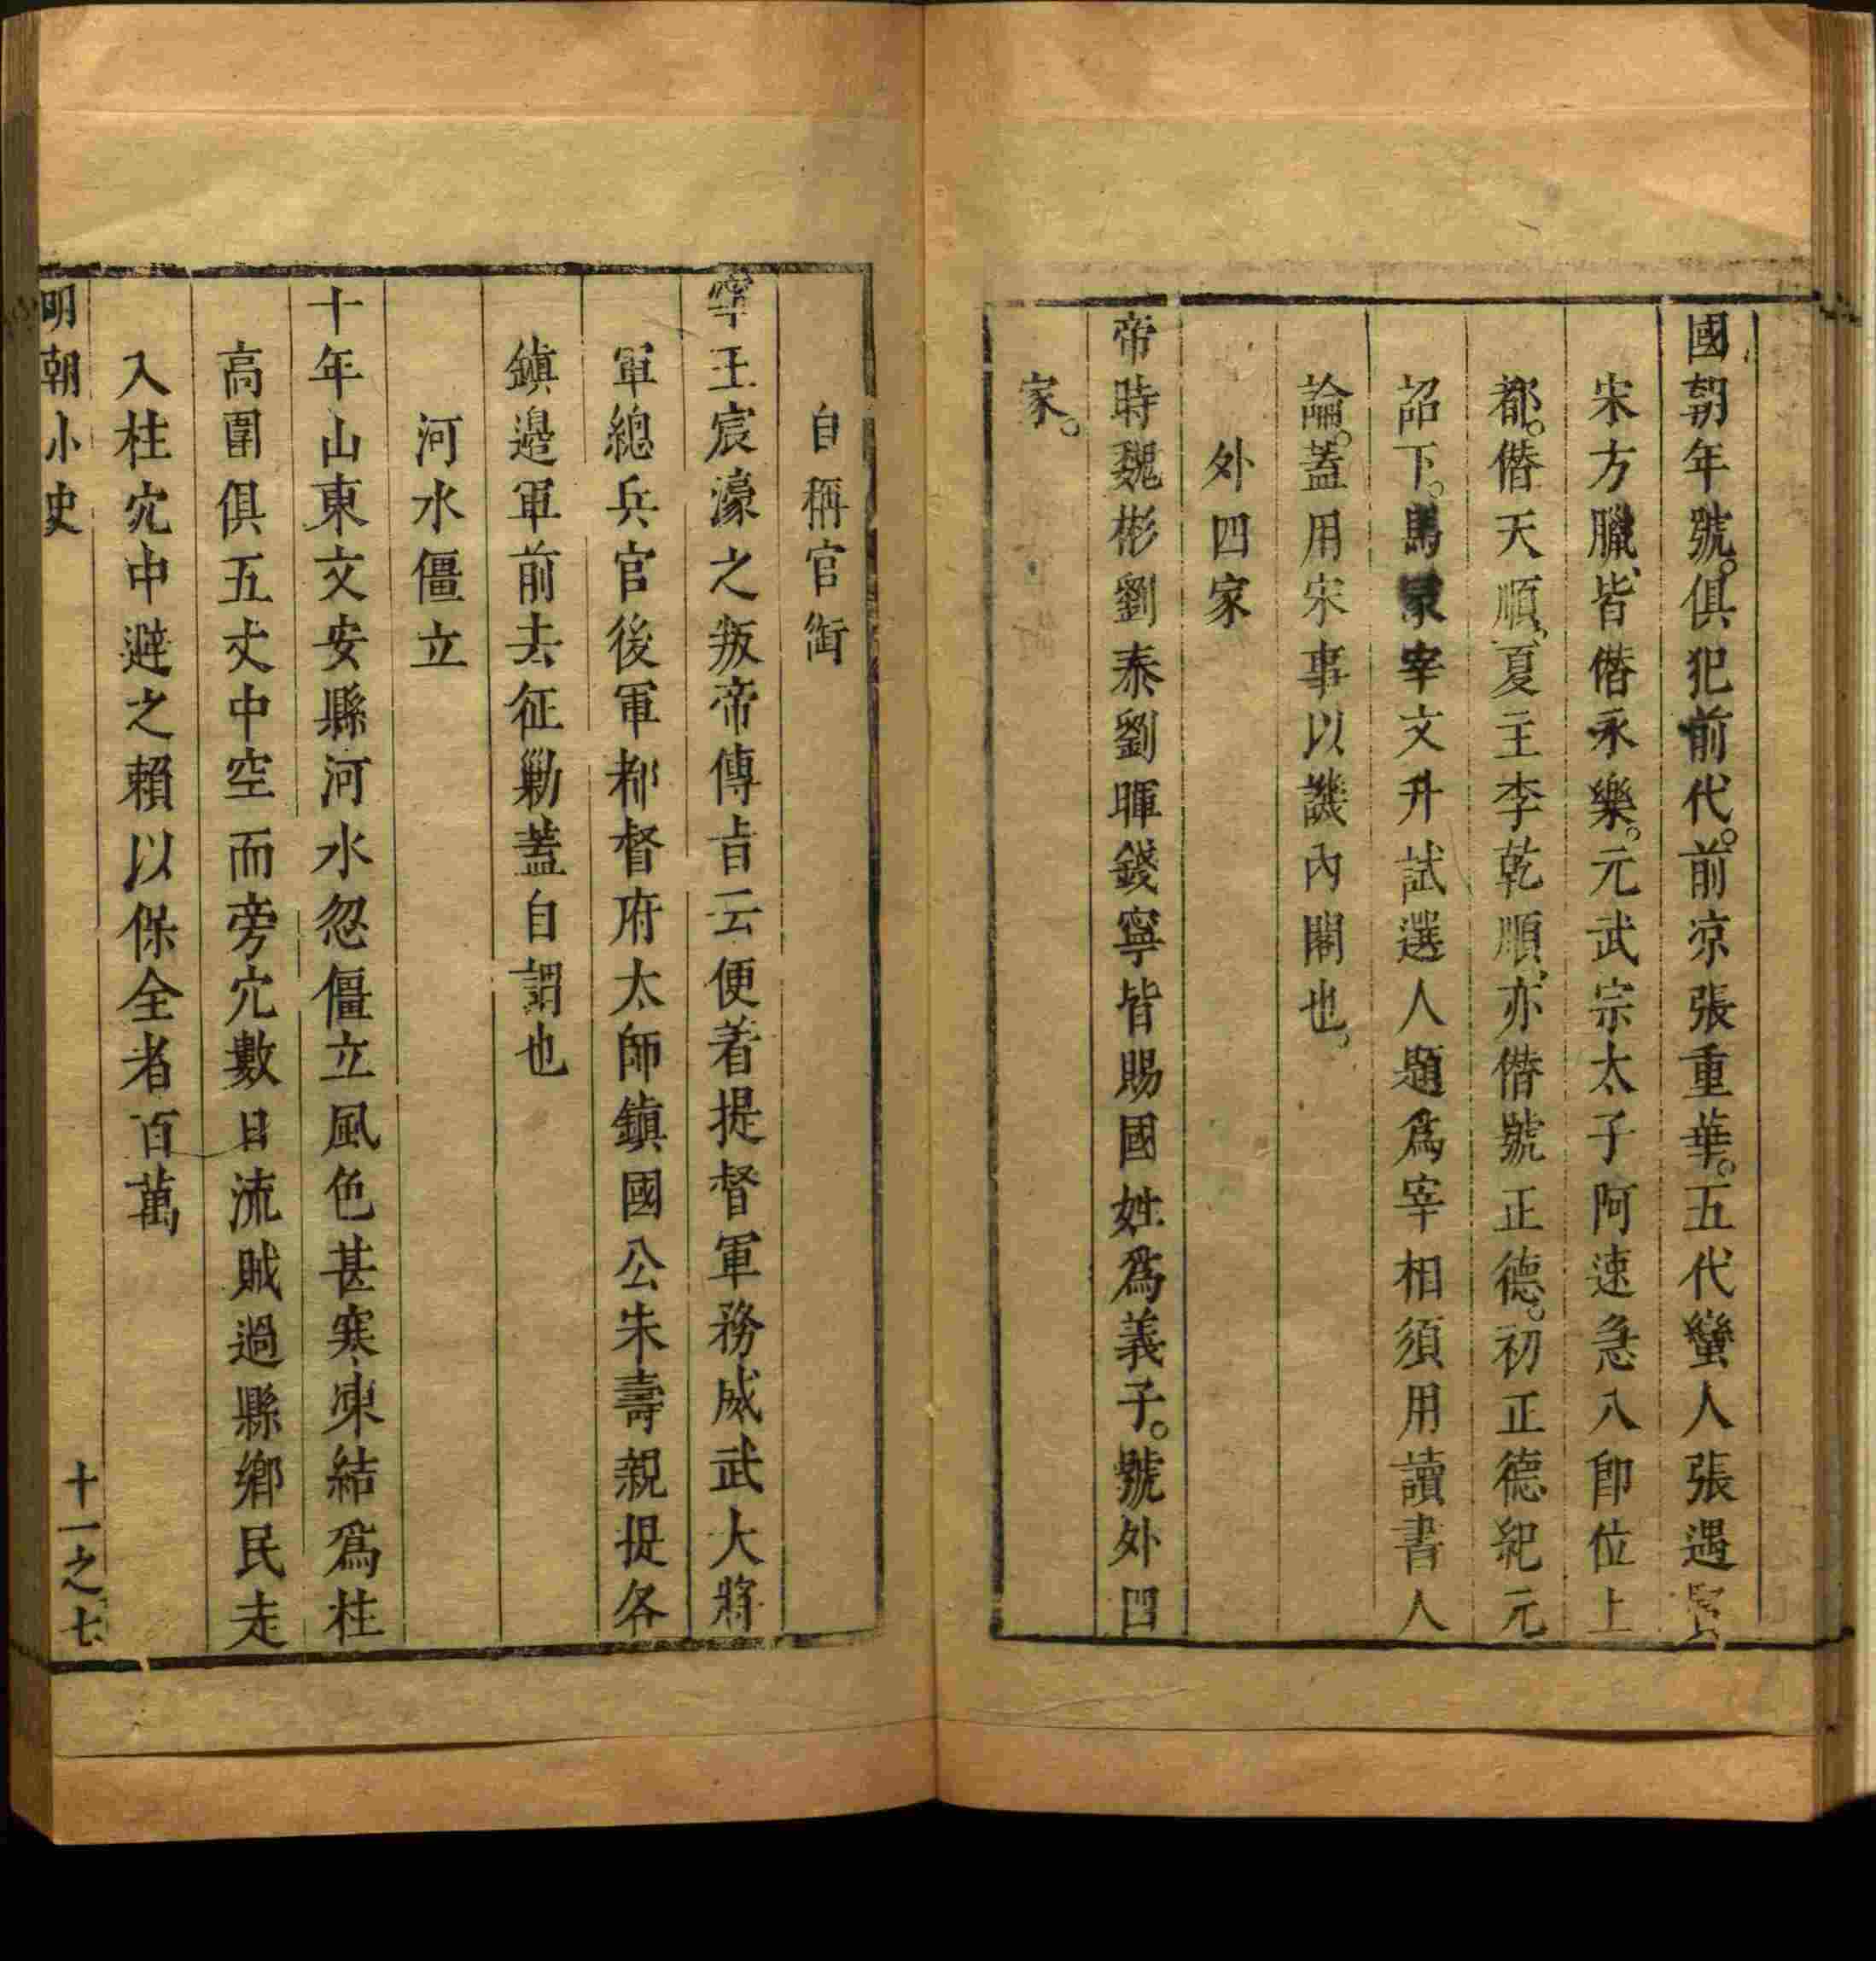 國朝年號。俱犯前代。前涼張重華。五代蠻人張遇賢
宋方臘、皆僭永樂。元武宗太子阿速急八卽位上
都。僭天順、夏主李乾順、亦僭號正德。初正德紀元
詔下。馬冢宰文升試選人題爲宰相須用讀書人
論。蓋用宋事以譏內閣也。
外四家
帝時魏彬劉泰劉暉錢寧皆賜國姓爲義子。號外四
家。
自稱官銜
寧王宸濠之叛帝傳旨云便着提督軍務威武大將
軍總兵官後軍都督府太師鎮國公朱壽親提各
鎮邊軍前去征勦蓋自謂也
河水僵立
十年山東文安縣河水忽僵立風色甚寒凍結爲柱
高圍俱五丈中空而旁穴數日流賊過縣鄉民走
入柱穴中避之賴以保全者百萬
明朝小史
十一之七